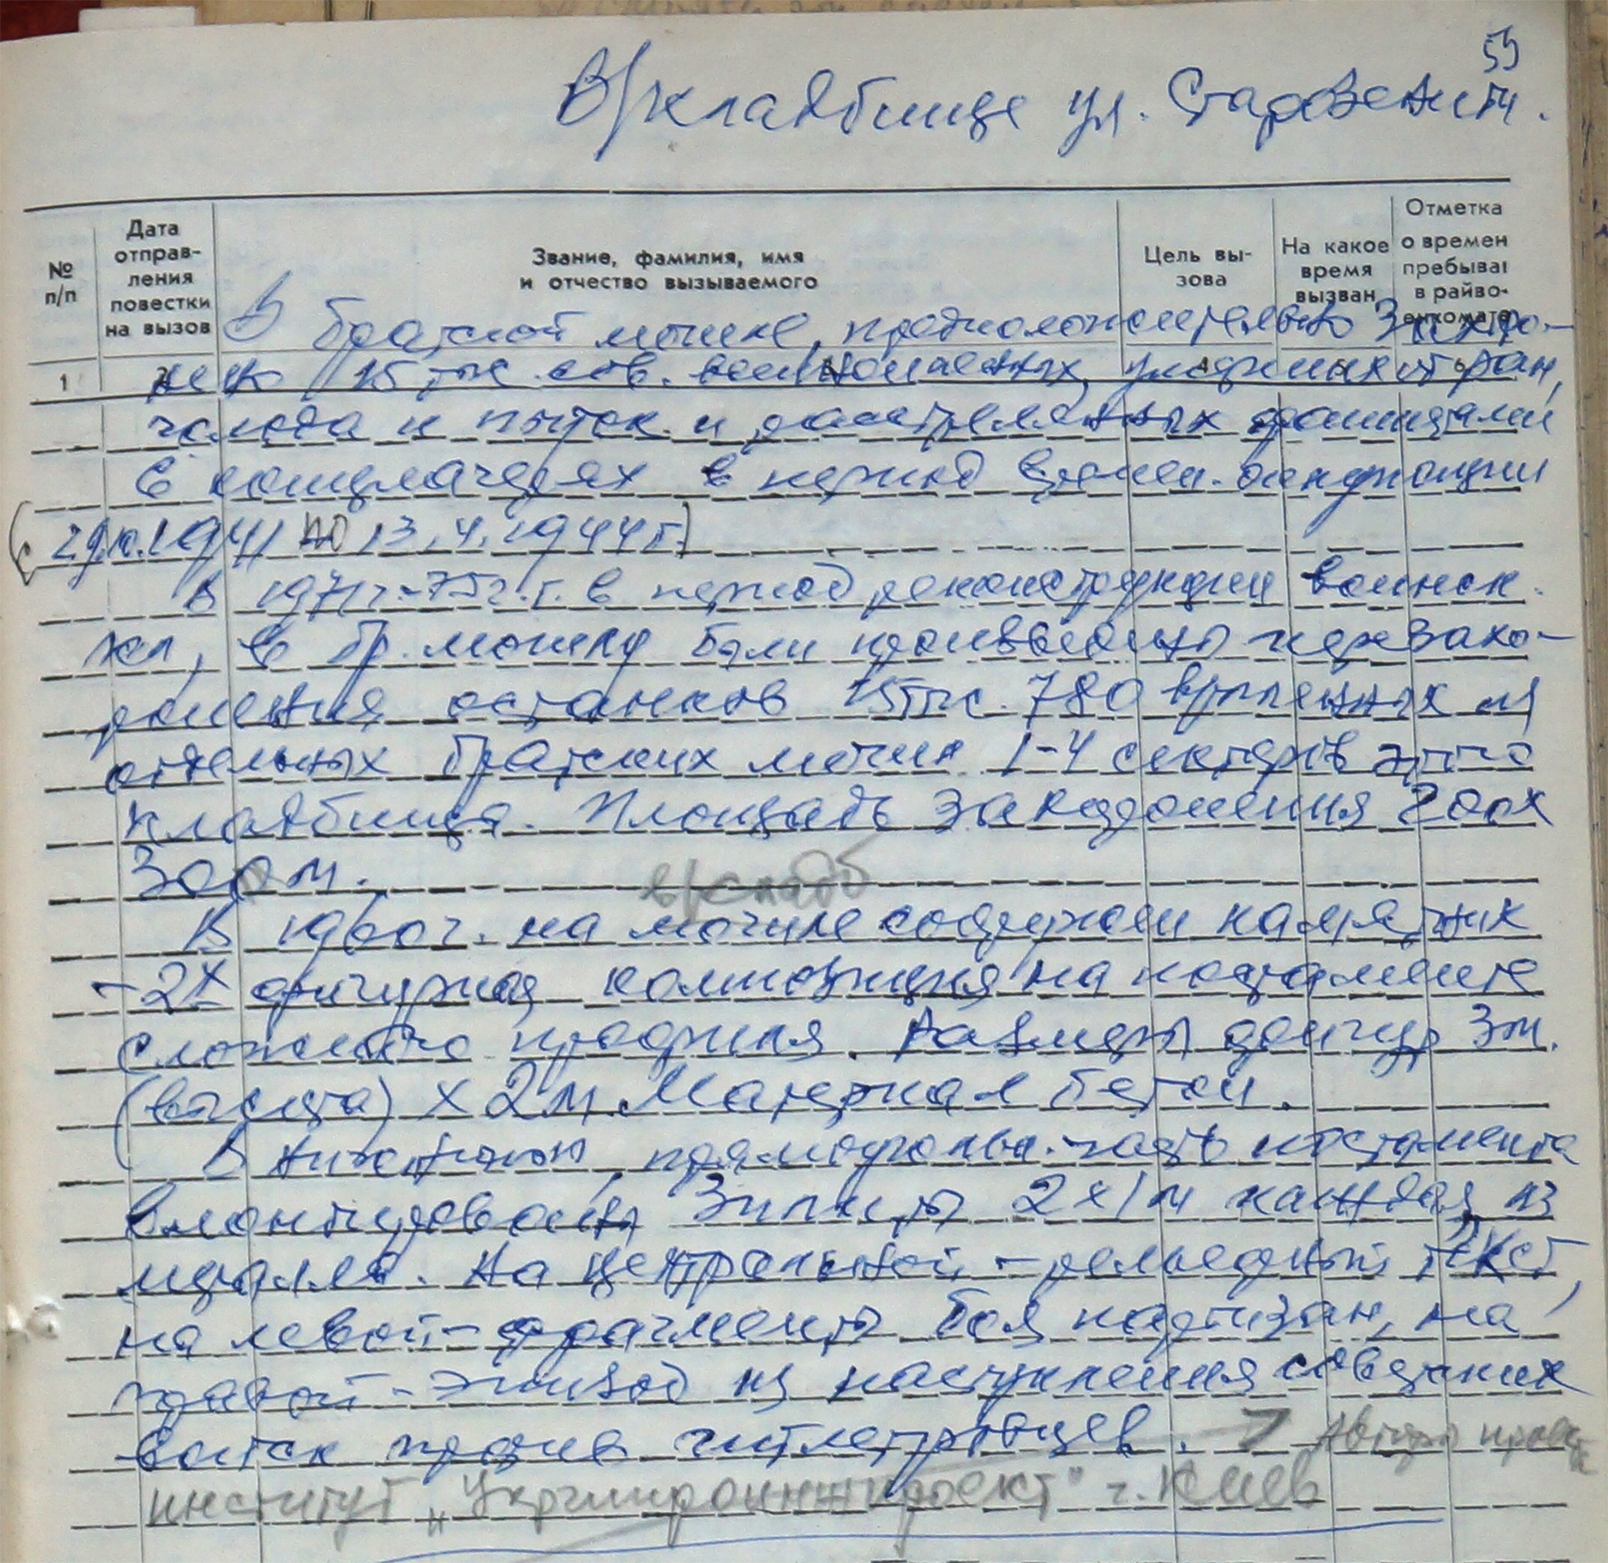 59
В/кладбище ул. Старозенитн.
№ п/п
Дата отправ- ления повестки на вызов
Звание, фамилия, имя и отчество вызываемого
Цель вы- зова
На какое время вызван
Отметка о времен пребыва в райво- енкомате
В братской могиле, предположительно захоро-
1 нено 15 тыс. сов. военнопленных, умерших от ран,
голода и пыток и расстрелянных фашистами
в концлагерях в период времен. оккупации
(с 29.10.1941 по 13.4.1944 г.)
В 1971г.-75г.г. в период реконструкции воинск.
кл, в бр. могилу были произведены перезахо-
ронения останков 15 тыс. 780 в/пленных из
отдельных братских могил 1-4 секторов этого
кладбища. Площадь захоронения 200х
300 м.
в/кладб
В 1960г. на могиле сооружен памятник
- 2х фигурная композиция на постаменте
сложного профиля. Размеры фигур 3 м.
(высота) х 2 м. Материал бетон.
В прямоугольн. часть постамента
вмонтированы 3 плиты 2х1м каждая из
металла. На центральной - рельефный текст,
на левой - фрагменты боя партизан, на
правой - эпизод из наступления советских
войск против гитлеровцев. Авторы
институт "Укргипрокоммжпроект" г. Киев